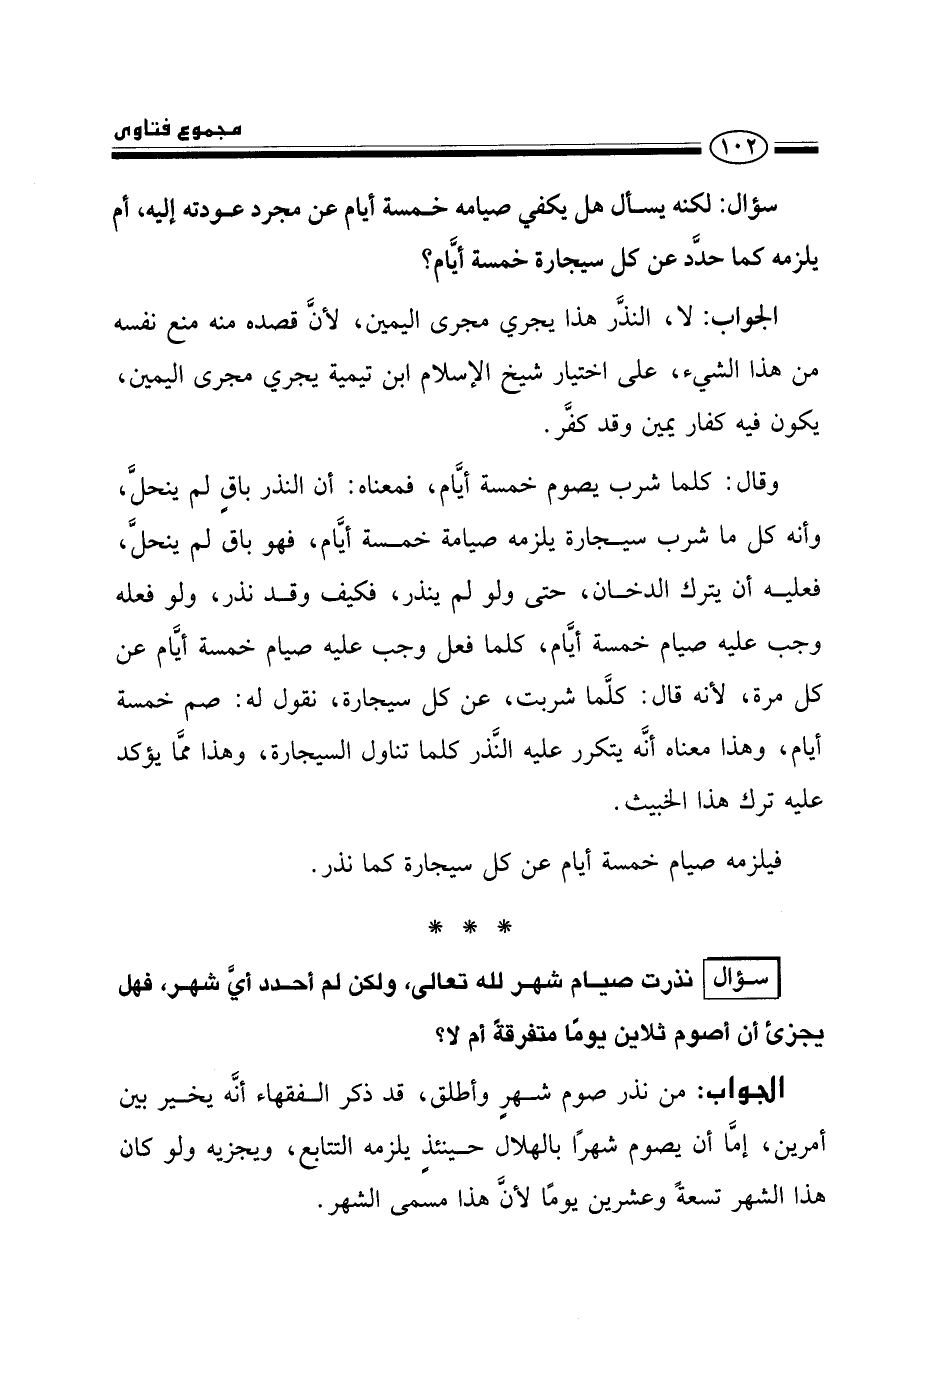 مجموع فتاوى
١٠٢
سؤال: لكنه يسأل هل يكفي صيامه خمسة أيام عن مجرد عودته إليه، أم
يلزمه كما حدَّد عن كل سيجارة خمسة أيَّام؟
الجواب: لا، النذَّر هذا يجري مجرى اليمين، لأنَّ قصده منه منع نفسه
من هذا الشيء، على اختيار شيخ الإسلام ابن تيمية يجري مجرى اليمين،
يكون فيه كفار يمين وقد كفَّر.
وقال: كلما شرب يصوم خمسة أيَّام، فمعناه: أن النذر باقٍ لم ينحلَّ،
وأنه كل ما شرب سيجارة يلزمه صيامة خمسة أيَّام، فهو باق لم ينحلَّ،
فعليه أن يترك الدخان، حتى ولو لم ينذر، فكيف وقد نذر، ولو فعله
وجب عليه صيام خمسة أيَّام، كلما فعل وجب عليه صيام خمسة أيَّام عن
كل مرة، لأنه قال: كلَّما شربت، عن كل سيجارة، نقول له: صم خمسة
أيام، وهذا معناه أنَّه يتكرر عليه النَّذر كلما تناول السيجارة، وهذا ممَّا يؤكد
عليه ترك هذا الخبيث.
فيلزمه صيام خمسة أيام عن كل سيجارة كما نذر.
* * *
سؤال نذرت صيام شهر لله تعالى، ولكن لم أحدد أيَّ شهر، فهل
يجزئ أن أصوم ثلاين يومًا متفرقةً أم لا؟
الجواب: من نذر صوم شهرٍ وأطلق، قد ذكر الفقهاء أنَّه يخير بين
أمرين، إمَّا أن يصوم شهرًا بالهلال حينئذٍ يلزمه التتابع، ويجزيه ولو كان
هذا الشهر تسعةً وعشرين يومًا لأنَّ هذا مسمى الشهر.